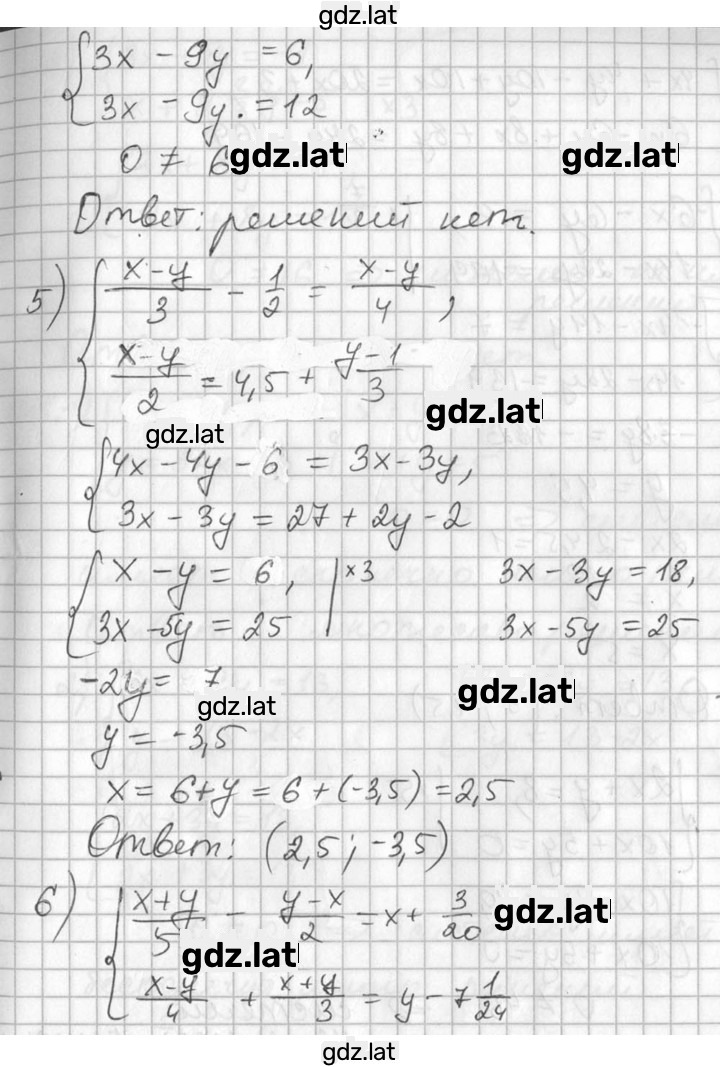 gdz.lat
{3x - 9y = 6,
3x - 9y. = 12
0 ≠ 6
gdz.lat gdz.lat
Ответ: решений нет.
5) { (x-y)/3 - 1/2 = (x-y)/4,
(x-y)/2 = 4,5 + (y-1)/3
gdz.lat
gdz.lat
{4x - 4y - 6 = 3x - 3y,
3x - 3y = 27 + 2y - 2
{x - y = 6, | x3 3x - 3y = 18,
3x - 5y = 25 3x - 5y = 25
-2y = 7
gdz.lat
gdz.lat
y = -3,5
x = 6+y = 6 + (-3,5) = 2,5
Ответ: (2,5; -3,5)
6) { (x+y)/5 - (y-x)/2 = x + 3/20
gdz.lat
gdz.lat
(x-y)/4 + (x+y)/3 = y - 7 1/24
gdz.lat